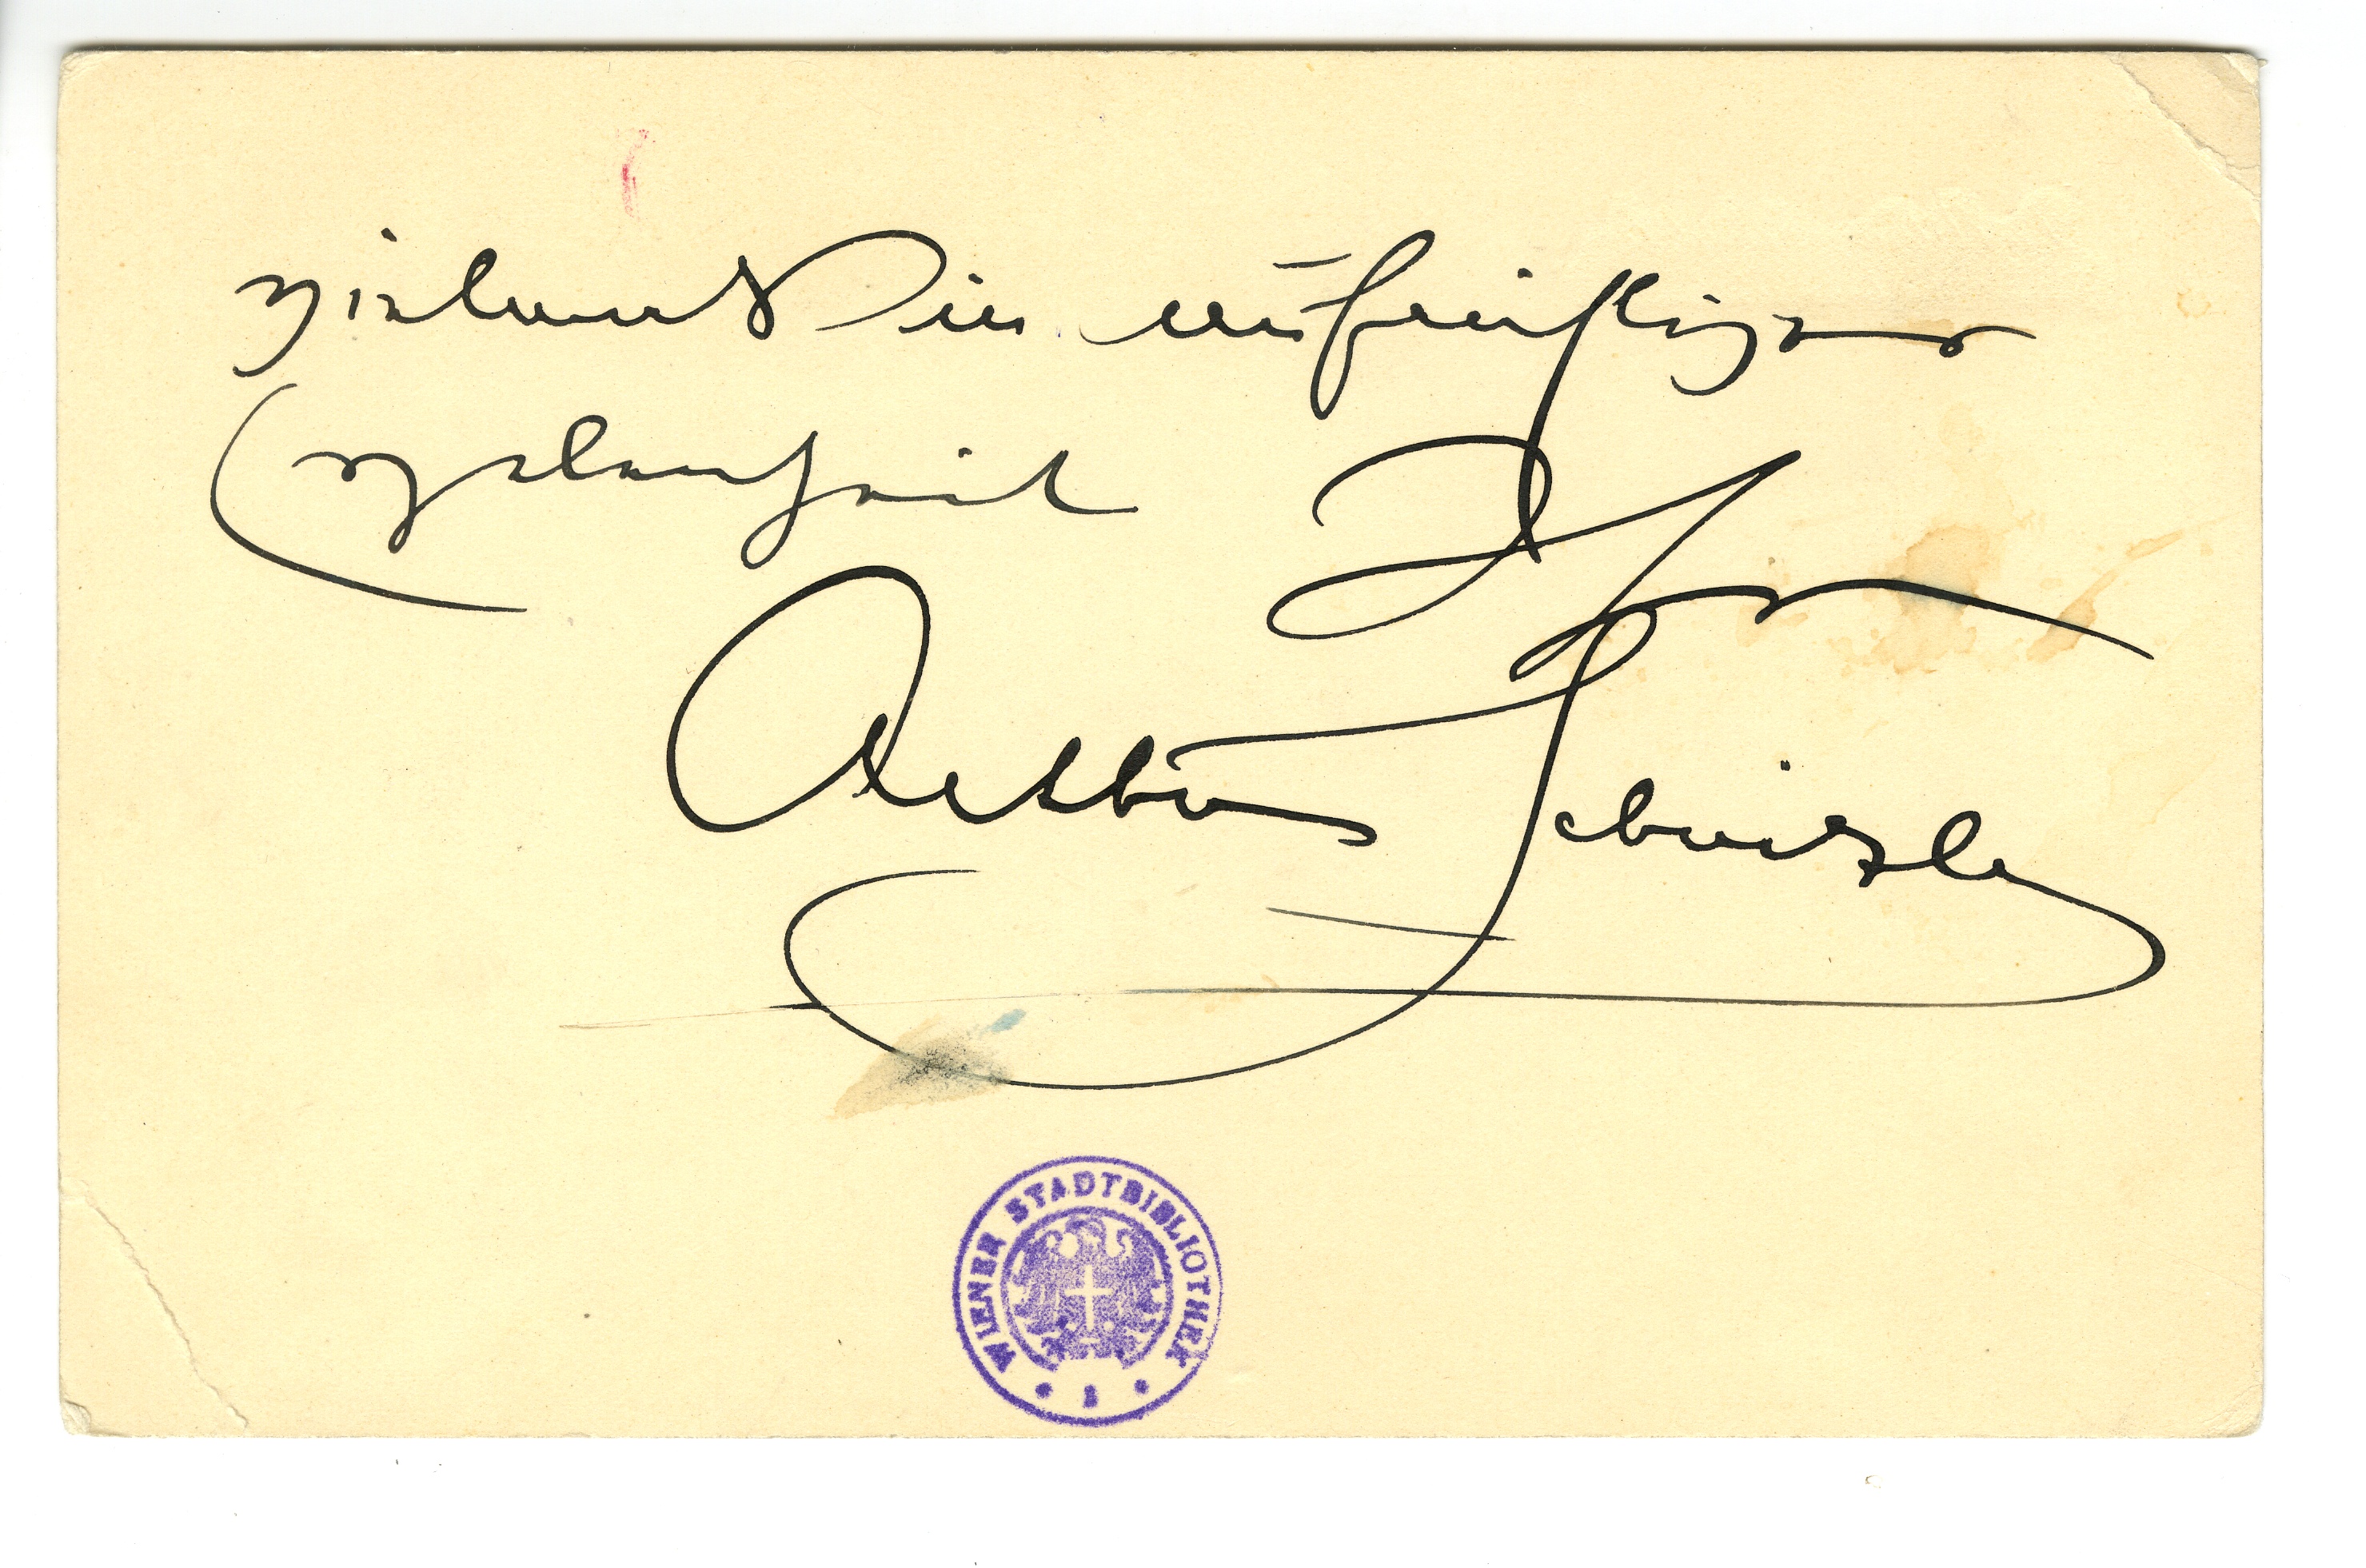 in aufrichtiger
Ergebenheit Ihr
Arthur Schnitzler
WIENER STADTBIBLIOTHEK